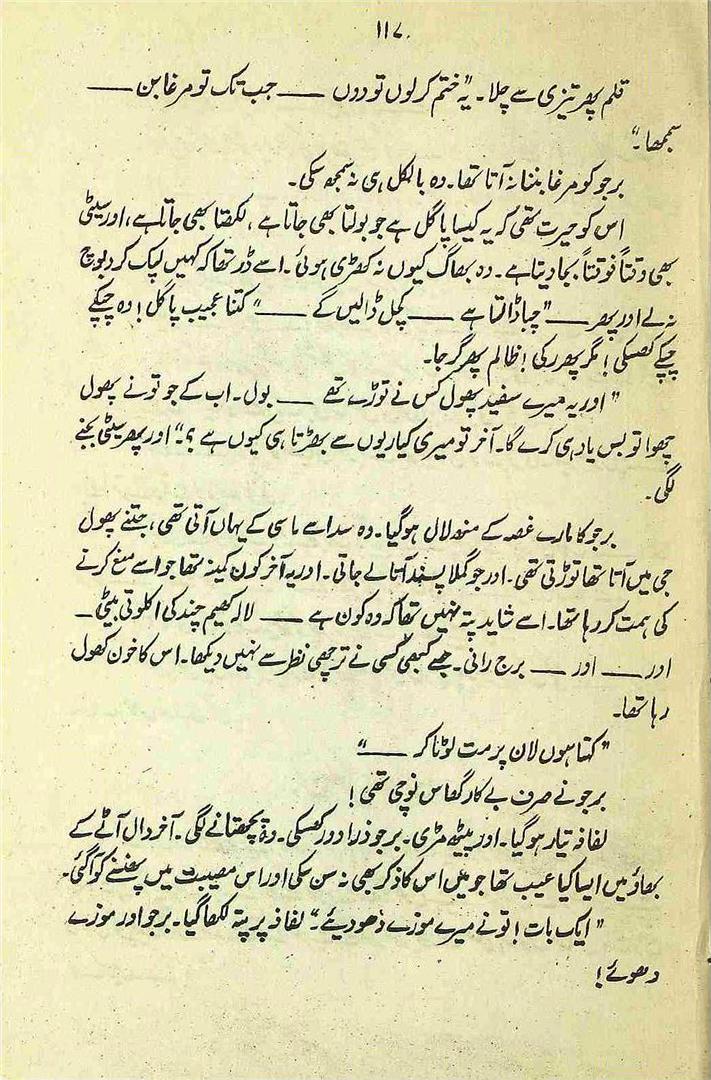 ۱۱۷
قلم پھر تیزی سے چلا۔ "یہ ختم کر لوں تو دوں —— جب تک تو مرغا بن ——
سمجھا۔"
برجو کو مرغا بننا نہ آتا تھا۔ وہ بالکل ہی نہ سمجھ سکی۔
اس کو حیرت تھی کہ یہ کیسا پاگل ہے جو بولتا بھی جاتا ہے، لکھتا بھی جاتا ہے، اور سیٹی
بھی وقتاً فوقتاً بجا دیتا ہے۔ وہ بھاگ کیوں نہ کھڑی ہوئی۔ اسے ڈر تھا کہ کہیں لپک کر دبوچ
نہ لے اور پھر —— "چبا ڈالتا ہے —— کچل ڈالیں گے ——" کتنا عجیب پاگل! وہ چپکے
چپکے کھسکی! مگر پھر رکی! ظالم پھر گرجا۔
"اور یہ میرے سفید پھول کس نے توڑے تھے —— بول۔ اب کے جو تو نے پھول
چھوا تو بس یاد ہی کرے گا۔ آخر تو میری کیاریوں سے بھڑتا ہی کیوں ہے؟۔" اور پھر سیٹی بجنے
لگی۔
برجو کا مارے غصہ کے منھ لال ہو گیا۔ وہ سدا سے ماسی کے یہاں آتی تھی، جتنے پھول
جی میں آتا تھا توڑتی تھی۔ اور جو گملا پسند آتا لے جاتی۔ اور یہ آخر کون کمینہ تھا جو اسے منع کرنے
کی ہمت کر رہا تھا۔ اسے شاید پتہ نہیں تھا کہ وہ کون ہے —— لالہ کھیم چند کی اکلوتی بیٹی۔
اور —— اور —— برج رانی۔ جسے کبھی کسی نے ترچھی نظر سے نہیں دیکھا۔ اس کا خون کھول
رہا تھا۔
"کہتا ہوں لان پر مت لوٹا کر ——"
برجو نے صرف بے کار گھاس نوچی تھی!
لفافہ تیار ہو گیا۔ اور پیٹھ مڑی۔ برجو ذرا دور کھسکی۔ وہ پچھتانے لگی۔ آخر دال آٹے کے
بھاؤ میں ایسا کیا عیب تھا جو میں اس کا ذکر بھی نہ سن سکی اور اس مصیبت میں پھنسنے کو آ گئی۔
"ایک بات! تو نے میرے موزے دھو دیئے۔" لفافہ پر پتہ لکھا گیا۔ برجو اور موزے
دھوئے!